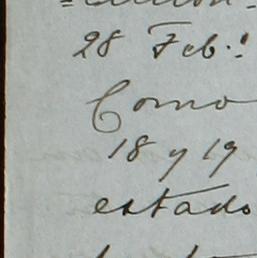 28 Feb.º
Como
18 y 19
estado